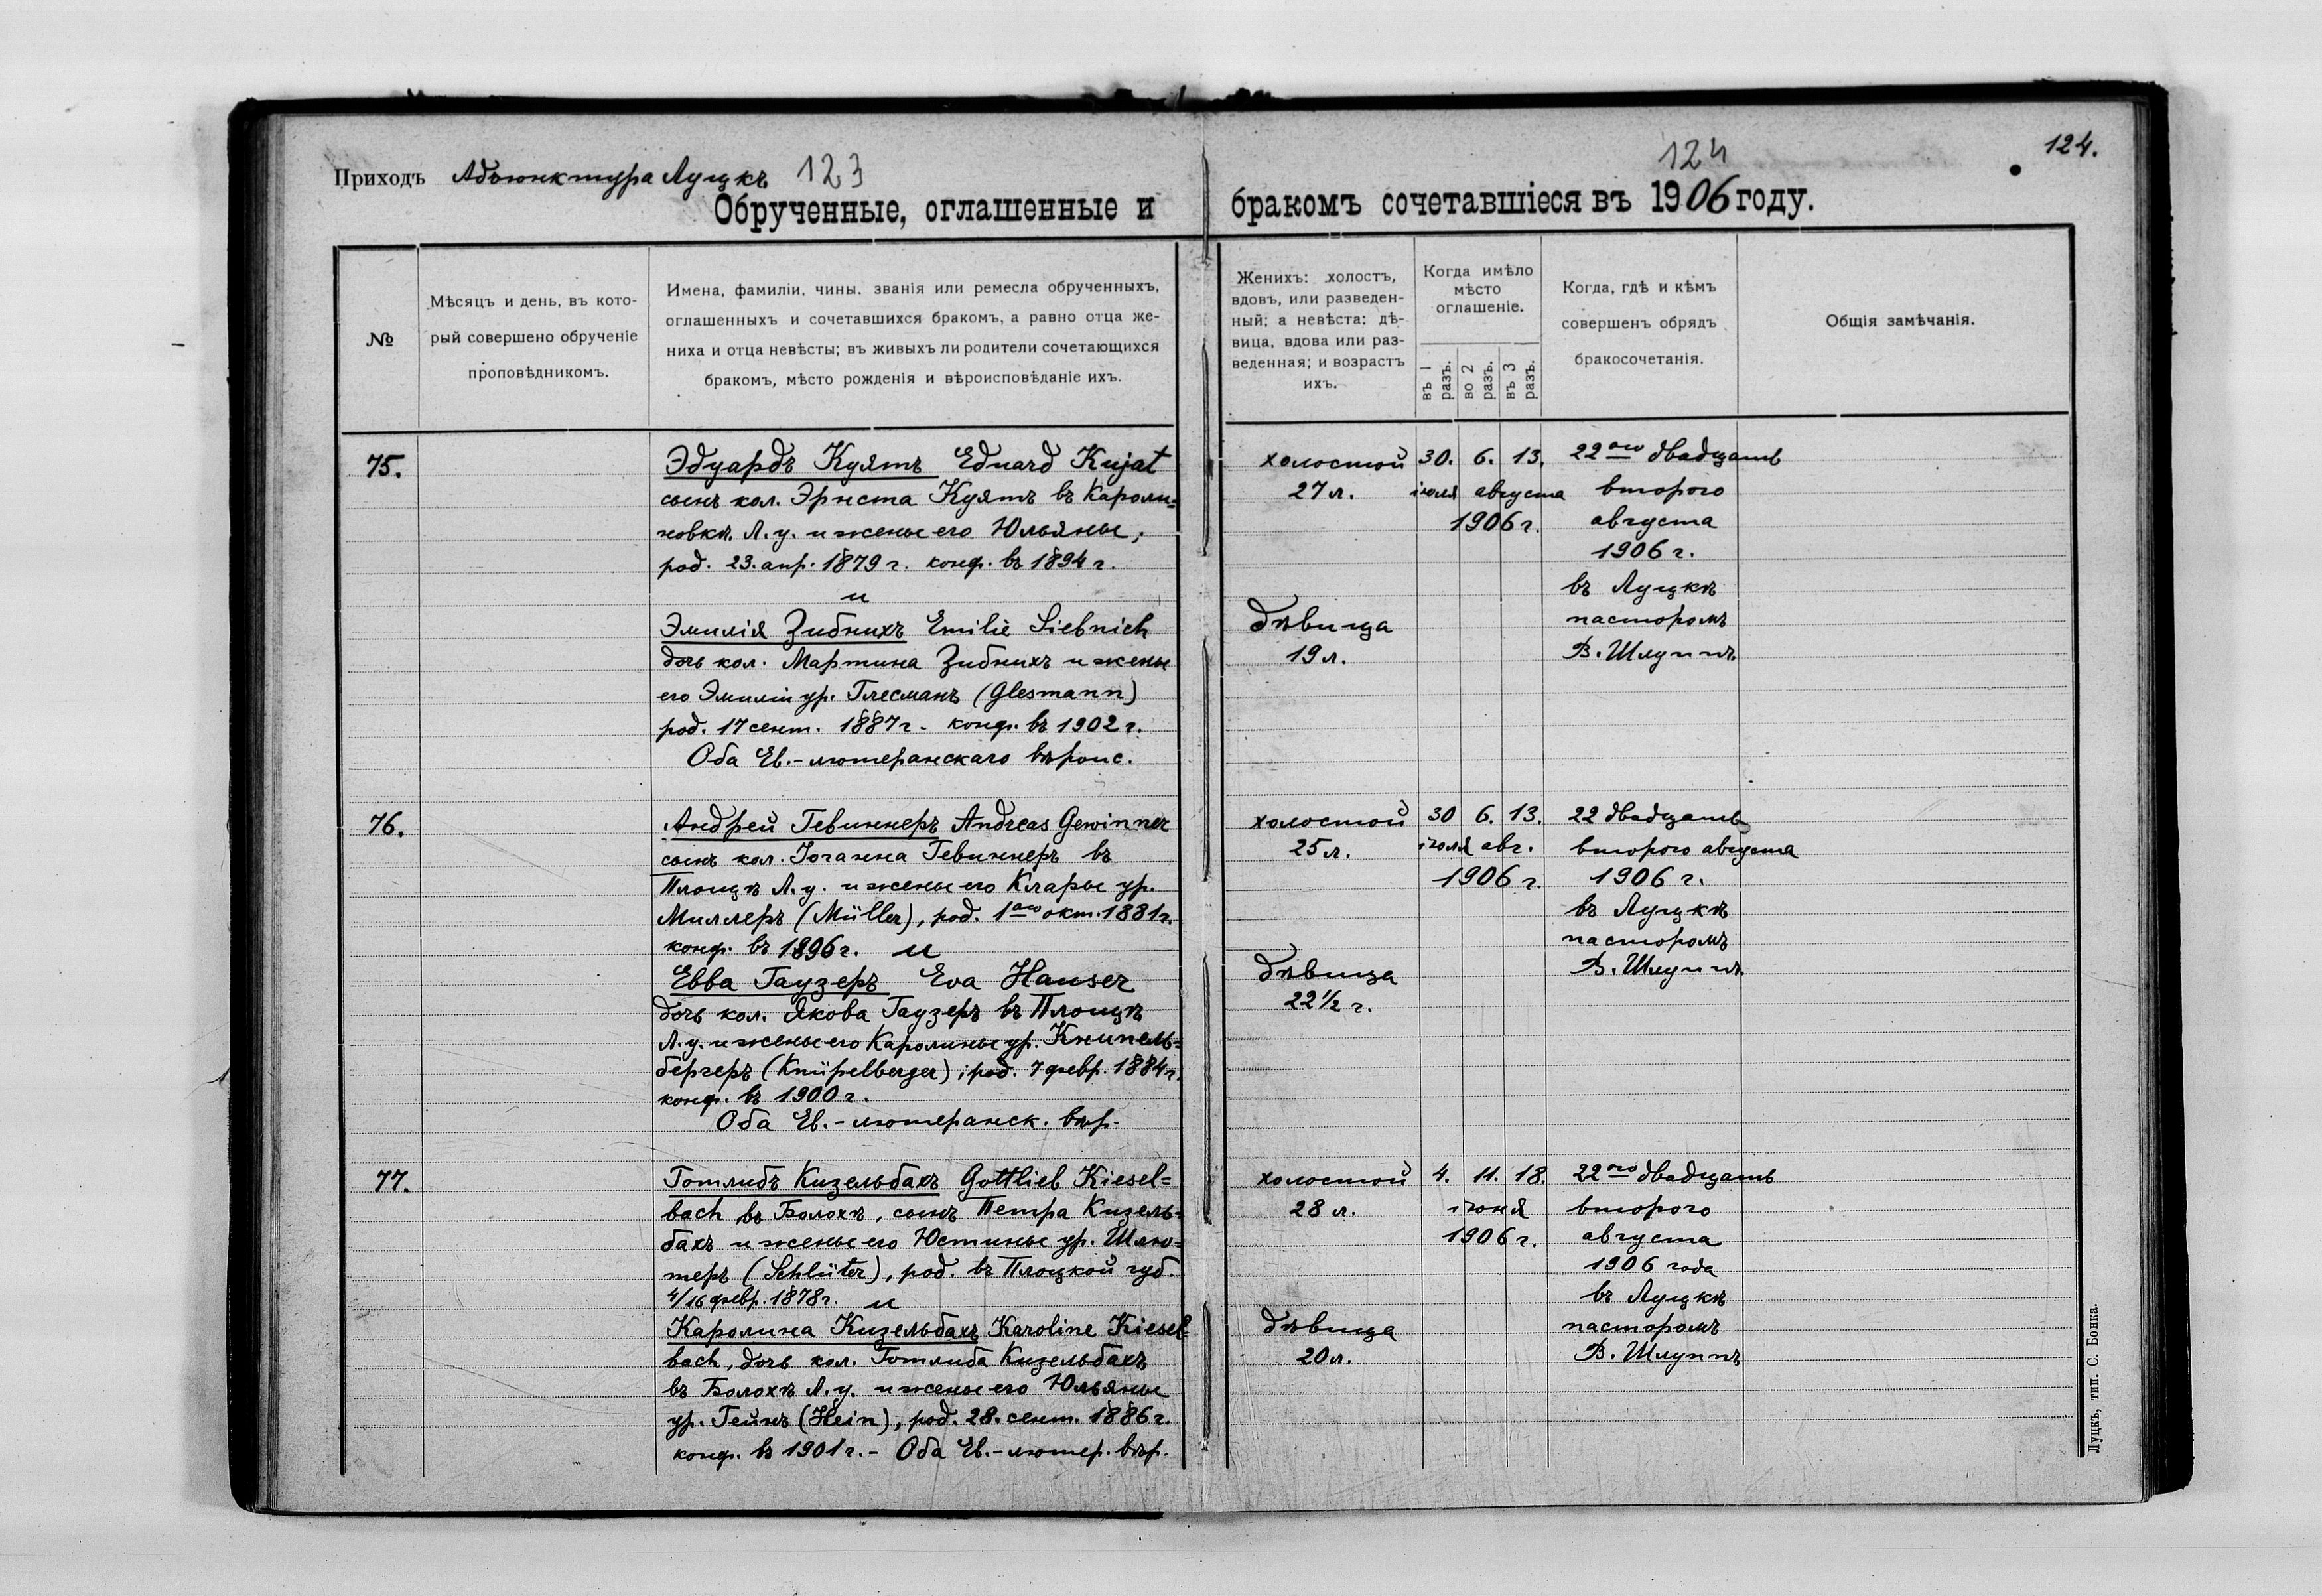 Приходъ Адъюнктура Луцкъ 123
Обрученные, оглашенные и
№
Мѣсяцъ и день, въ кото-
рый совершено обрученіе
проповѣдникомъ.
Имена, фамиліи, чины, званія или ремесла обрученныхъ,
оглашенныхъ и сочетавшихся бракомъ, а равно отца же-
ниха и отца невѣсты; въ живыхъ ли родители сочетающихся
бракомъ, мѣсто рожденія и вѣроисповѣданіе ихъ.
75.
Эдуардъ Куятъ Eduard Kujat
сынъ кол. Эрнста Куятъ въ Кароли=
новкѣ Л. у. и жены его Юльяны,
род. 23. апр. 1879 г. конф. въ 1894 г.
и
Эмилія Зибнихъ Emilie Siebnich
дочь кол. Мартина Зибнихъ и жены
его Эмиліи ур. Глесманъ (Glesmann)
род. 17 сент. 1887 г. конф. въ 1902 г.
Оба Ев.-лютеранскаго вѣроис.
76.
Андрей Гевиннеръ Andreas Gewinner
сынъ кол. Іоганна Гевиннеръ въ
Площѣ Л. у. и жены его Клары ур.
Миллеръ (Müller), род. 1аго окт. 1881 г.
конф. въ 1896 г. и
Евва Гаузеръ Eva Hauser
дочь кол. Якова Гаузеръ въ Площѣ
Л. у. и жены его Каролины ур. Книпель=
бергеръ (Knüpelberger), род. 7 февр. 1884 г.
конф. въ 1900 г.
Оба Ев.-лютеранск. вѣр.
77.
Готлибъ Кизельбахъ Gottlieb Kiesel=
bach въ Болохѣ, сынъ Петра Кизель=
бахъ и жены его Юстины ур. Шлю=
теръ (Schlüter), род. въ Плоцкой губ.
4/16 февр. 1878 г. и
Каролина Кизельбахъ Karoline Kiesel=
bach, дочь кол. Готлиба Кизельбахъ
въ Болохѣ Л. у. и жены его Юльяны
ур. Гейнъ (Hein), род. 28. сент. 1886 г.
конф. въ 1901 г. - Оба Ев.-лютер. вѣр.
124
124.
бракомъ сочетавшіеся въ 1906 году.
Женихъ: холостъ,
вдовъ, или разведен-
ный; а невѣста: дѣ-
вица, вдова или раз-
веденная; и возрастъ
ихъ.
Когда имѣло
мѣсто
оглашеніе.
въ 1 разъ.
во 2 разъ.
въ 3 разъ.
Когда, гдѣ и кѣмъ
совершенъ обрядъ
бракосочетанія.
Общія замѣчанія.
холостой
27 л.
дѣвица
19 л.
30. 6. 13.
іюля августа
1906 г.
22ого двадцать
второго
августа
1906 г.
въ Луцкѣ
пасторомъ
В. Шлуппъ
холостой
25 л.
дѣвица
22 1/2 г.
30 6. 13.
іюля авг.
1906 г.
22 двадцать
второго августа
1906 г.
въ Луцкѣ
пасторомъ
В. Шлуппъ
холостой
28 л.
дѣвица
20 л.
4. 11. 18.
іюня
1906 г.
22ого двадцать
второго
августа
1906 года
въ Луцкѣ
пасторомъ
В. Шлуппъ
Луцкъ, тип. С. Бонка.